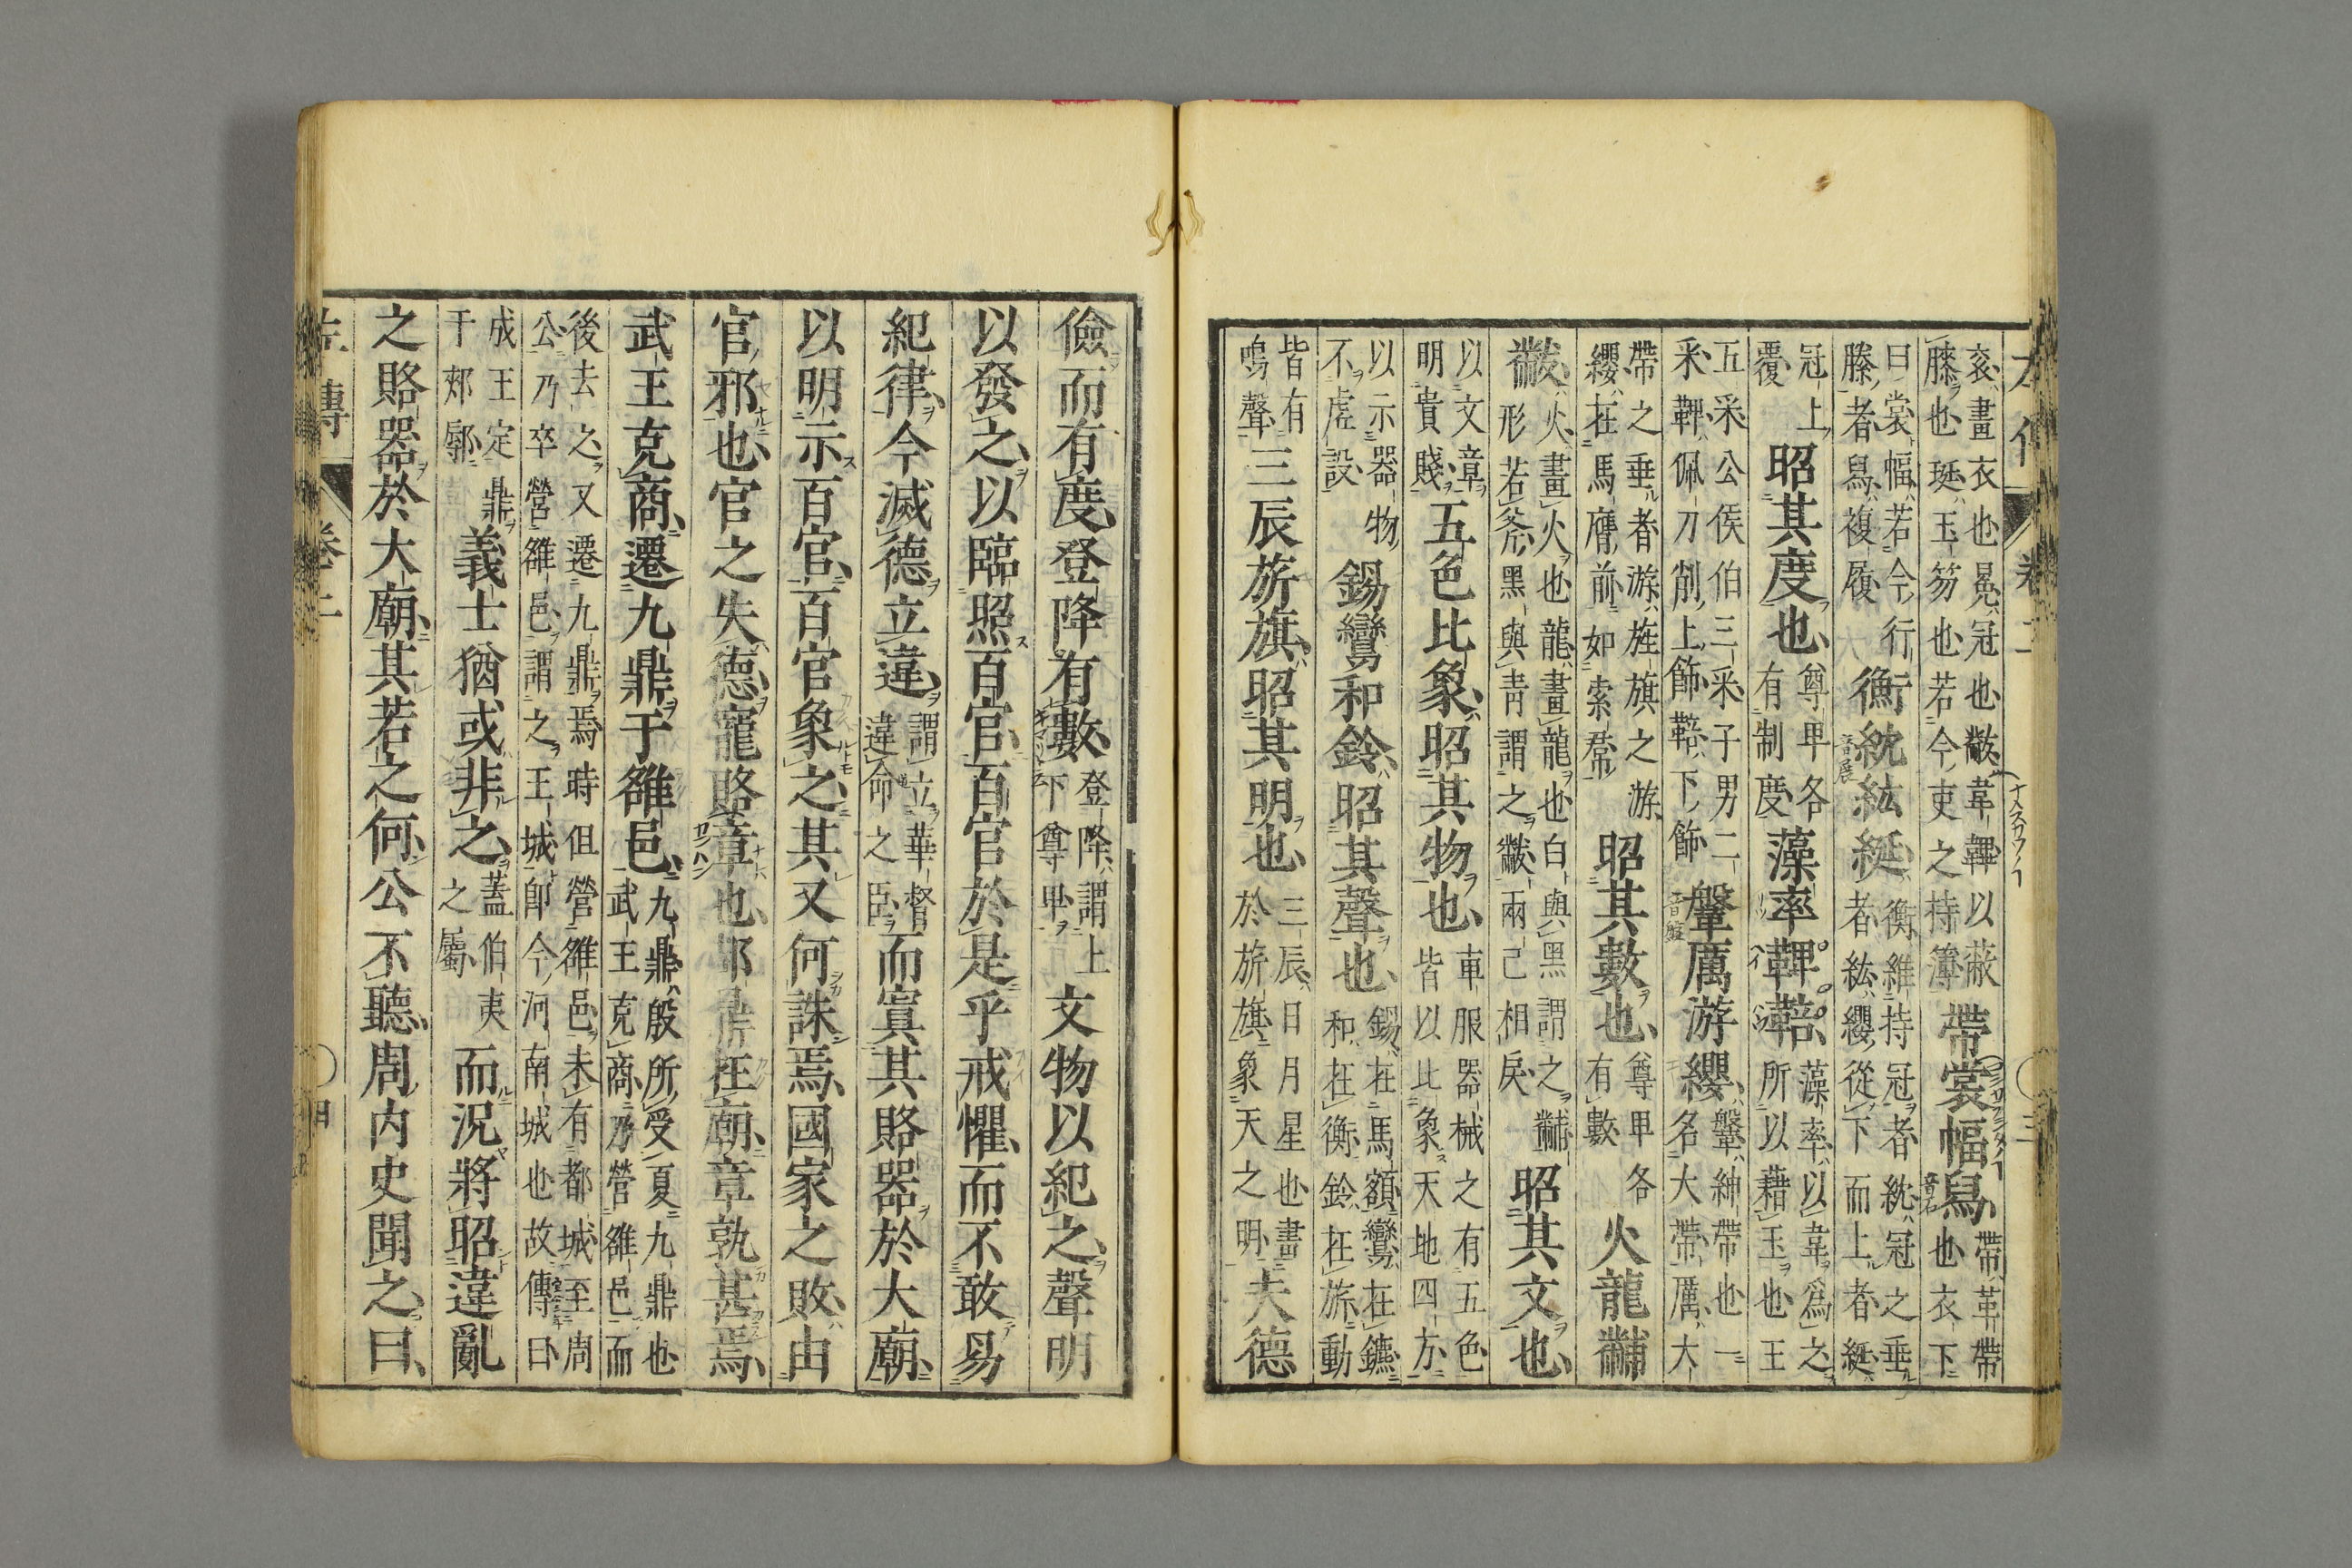 左傳 卷二 〇三
衮畫衣也冕冠也黻韋韠以蔽
膝也珽玉笏也若今吏之持簿帶裳幅舄帶革帶也衣下
曰裳幅若今行縢者舄複履衡紞紘綖衡維持冠者紞冠之垂者紘纓從下而上者綖
冠上覆昭其度也尊卑各有制度藻率鞞鞛藻率以韋爲之所以藉玉也王
五采公侯伯三采子男二采鞞佩刀削上飾鞛下飾鞶厲游纓鞶紳帶也一名大帶厲大
帶之垂者游旌旗之游纓在馬膺前如索帬昭其數也尊卑各有數火龍黼
黻火畫火也龍畫龍也白與黑謂之黼形若斧黑與靑謂之黻兩己相戾昭其文也
以文章明貴賤五色比象昭其物也車服器械之有五色皆以比象天地四方
以示器物不虛設鍚鸞和鈴昭其聲也鍚在馬額鸞在鑣和在衡鈴在旂動
皆有鳴聲三辰旂旗昭其明也三辰日月星也畫於旂旗象天之明夫德
儉而有度登降有數登降謂上下尊卑文物以紀之聲明
以發之以臨照百官百官於是乎戒懼而不敢易
紀律今滅德立違謂立華督違命之臣而寘其賂器於大廟
以明示百官百官象之其又何誅焉國家之敗由
官邪也官之失德寵賂章也郜鼎在廟章孰甚焉
武王克商遷九鼎于雒邑九鼎殷所受夏九鼎也武王克商乃營雒邑而
後去之又遷九鼎焉時但營雒邑未有都城至周公乃卒營雒邑謂之王城卽今河南城也故傳曰
成王定鼎于郟鄏義士猶或非之蓋伯夷之屬而況將昭違亂
之賂器於大廟其若之何公不聽周內史聞之曰
左傳 卷二 〇四